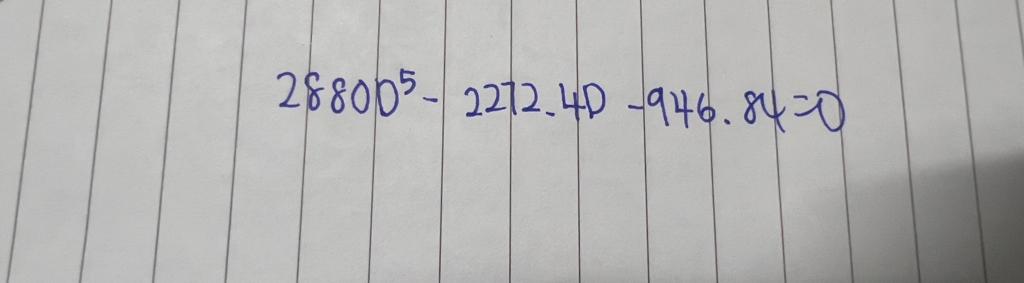 2880D⁵ - 2272.4D - 946.84 = 0